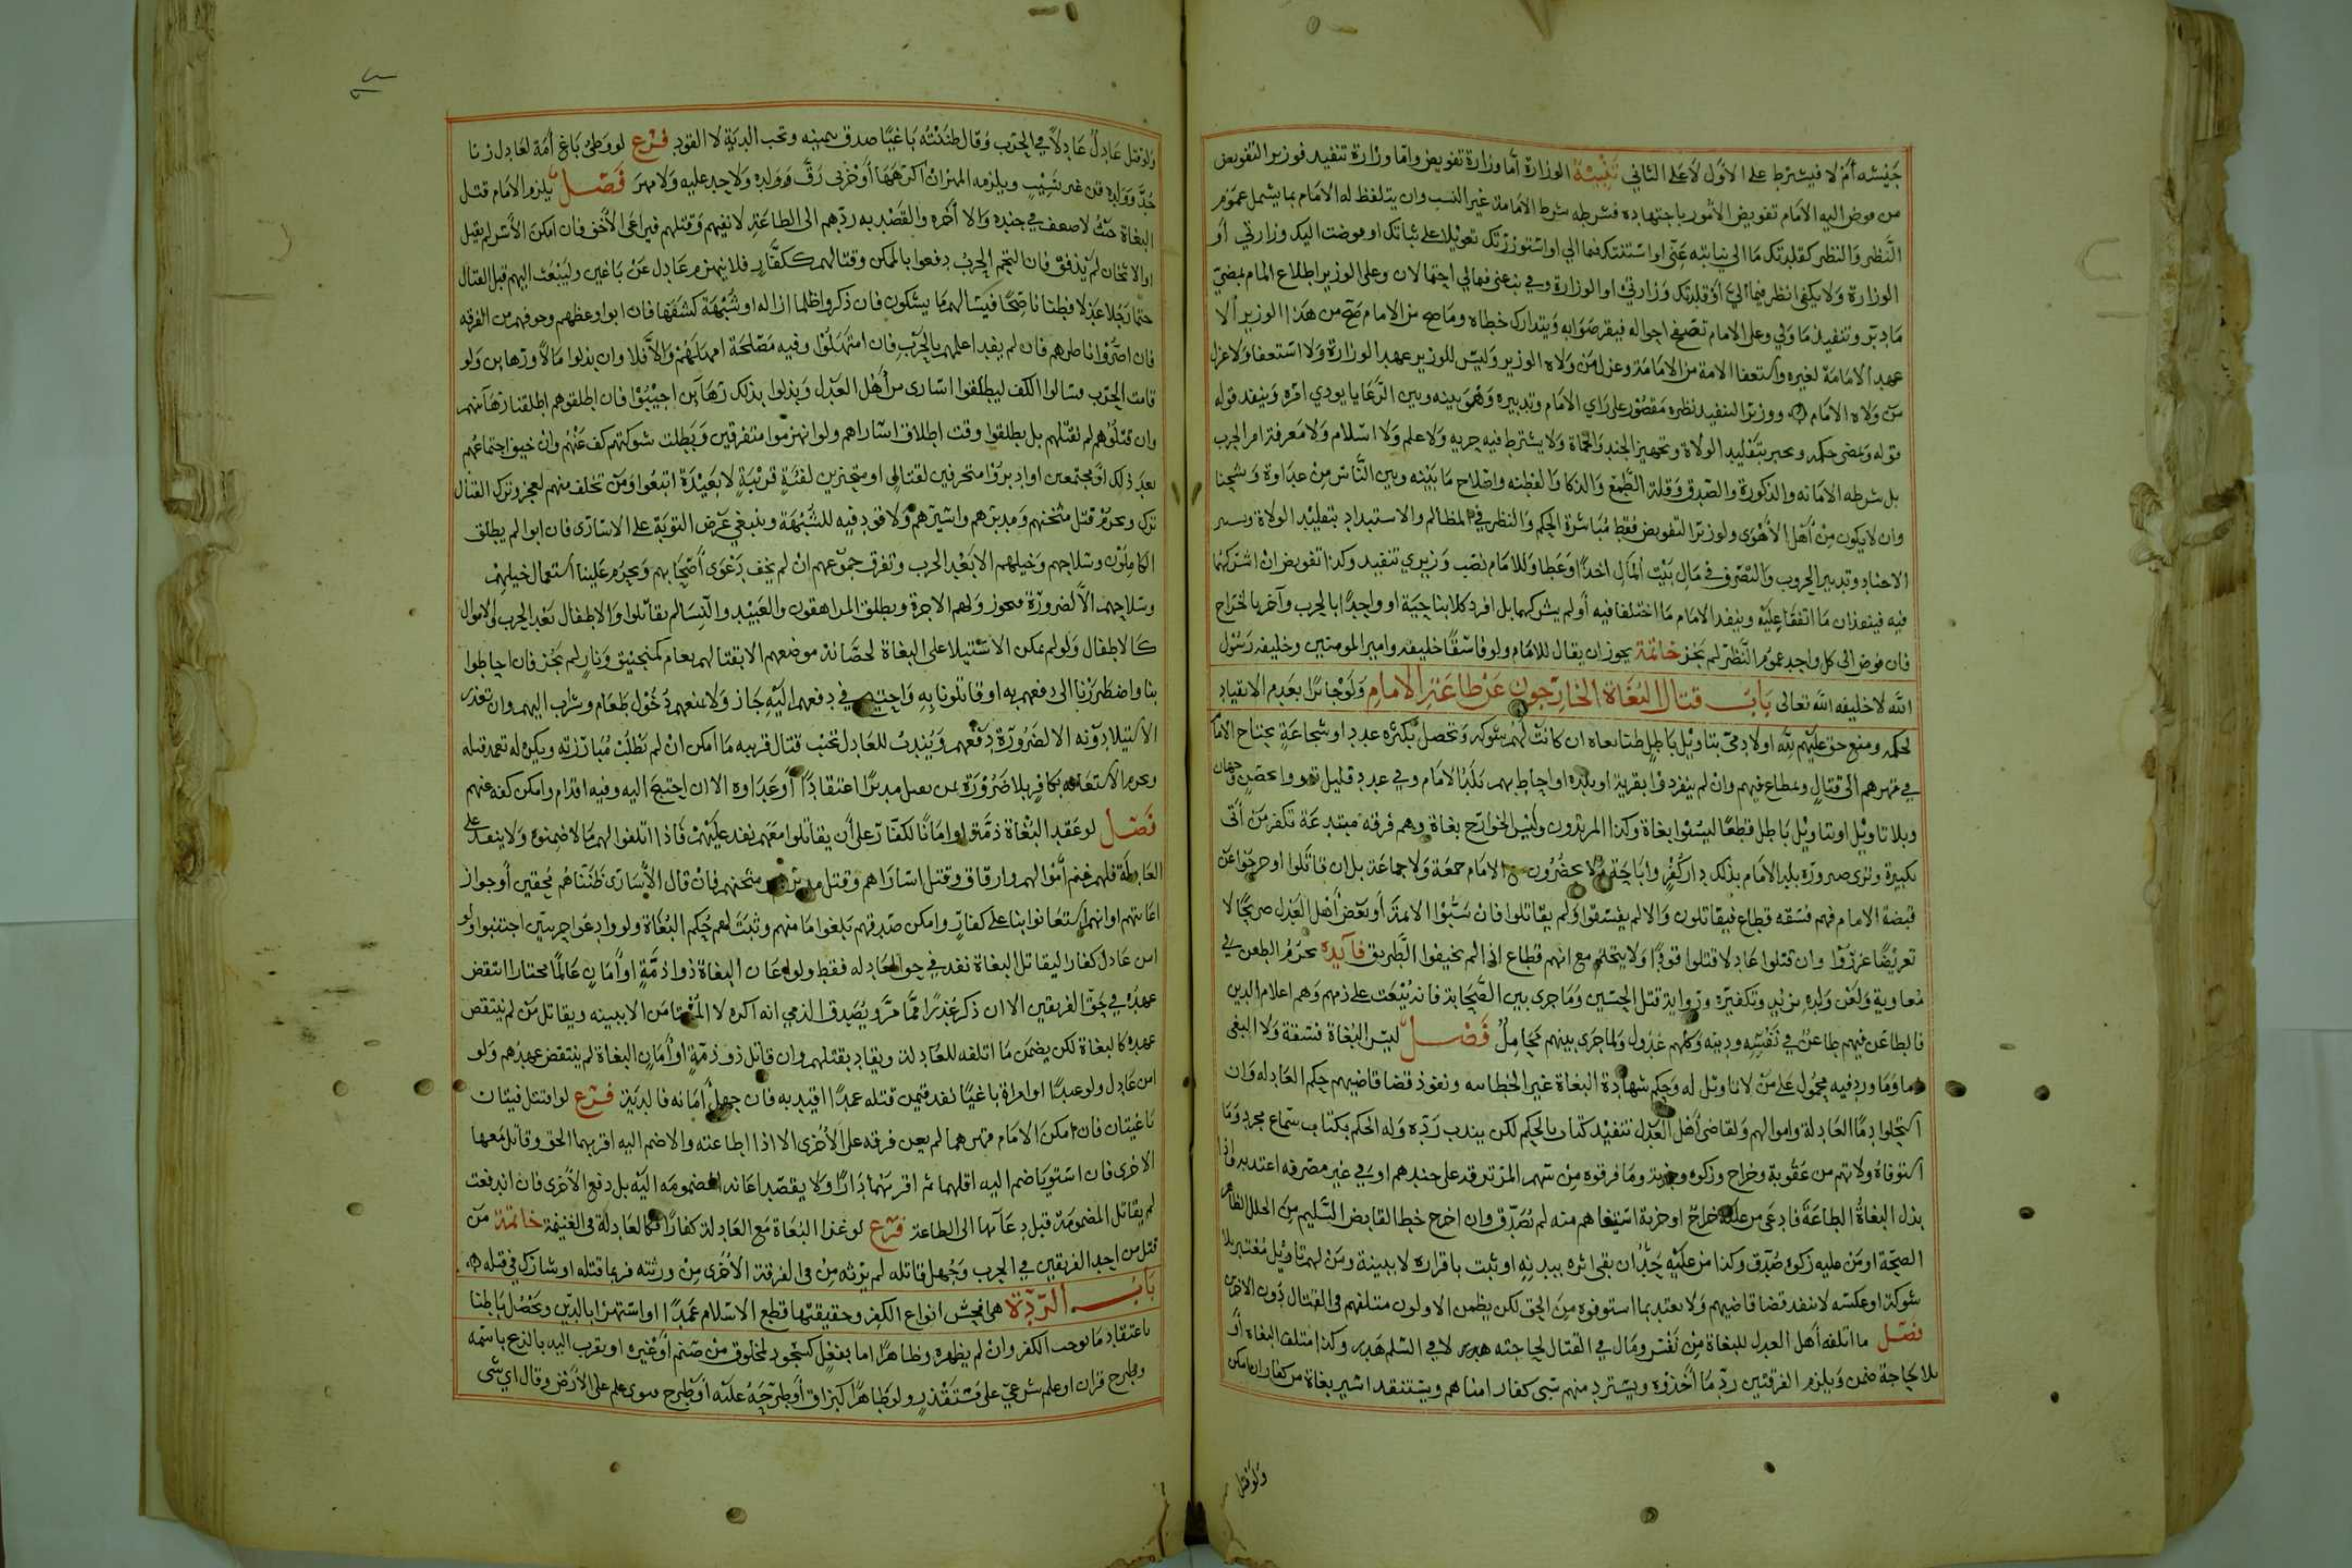 جيشه أم لا فيشترط على الأول لا على الثاني تنبيه الوزارة أما وزارة تفويض واما وزارة تنفيذ فوزير التفويض
من فوض اليه الامام تفويض الأمور باجتهاده فشرطه شرط الامامة غير النسب وان يتلفظ له الامام بما يشمل عموم
النظر والنظر كقلدتك ما الي نيابة عني او استنبتك فيما الي او استوزرتك تعويلا على نيابتك او فوضت اليك وزارتي أو
الوزارة ولا يكفي انظر فيما الي او قلدتك وزارتي او الوزارة وفي ينعني فيما الي احتمالان وعلى الوزير اطلاع الامام بمضي
ما دبر وتنفيذ ما ولي وعلى الامام تصفح احواله فيقر صوابه ويتدارك خطاه وما صح من الامام صح من هذا الوزير ألا
عهد الامامة لغيره واستعفا الامة من الامامة وعزل من ولاه الوزير وليس للوزير عهد الوزارة ولا استعفا ولا عزل
من ولاه الامام ووزير التنفيذ نظره مقصور على راي الامام وتدبيره وهو بينه وبين الرعايا يودي امره وينفذ قوله
قوله ويمضي حكمه ويخبر بتقليد الولاة وتجهيز الجند والحماة ولا يشترط فيه حريه ولا علم ولا اسلام ولا معرفة امر الحرب
بل شرطه الامانه والذكورة والصدق وقلة الطمع والذكا والفطنه واصلاح ما بينه وبين الناس من عداوة وشحنا
وان لا يكون من أهل الأهوى ولوزير التفويض فقط مباشرة الحكم والنظر في المظالم والاستبداد بتقليد الولاة وتسيير
الاجناد وتدبير الحروب والتصرف في مال بيت المال اخذا وعطا وللامام نصب وزيري تنفيذ وكذا تفويض ان اشركهما
فيه فينفذان ما اتفقا عليه وينفذ الامام ما اختلفا فيه أو لم يشركهما بل افرد كلا بناحية او واحدا بالحرب وآخر بالخراج
فان فوض الى كل واحد عموم النظر لم يجز خاتمة يجوز ان يقال للامام ولو فاسقا خليفه وامير المومنين وخليفه رسول
الله لا خليفه الله تعالى باب قتال البغاة الخارجون عن طاعة الامام ولو جائرا بعدم الانقياد
لحكمه ومنع حق عليهم لله او لادمي بتاويل باطل ظنا بغاه ان كانت لهم شوكه وتحصل بكثره عدد او شجاعة يحتاج الامام
في قهرهم الى قتال وبمطاع فيهم وان لم ينفردوا بقرية او بلده او احاط بهم بلد الامام وفي عدد قليل تقووا بحصن وجهان
وبلا تاويل او بتاويل باطل قطعا ليسوا بغاة وكذا المرتدون وليس الخوارج بغاة وهم فرقه مبتدعة تكفر من أتى
بكبيرة وترى صيرورة بلد الامام بذلك دار كفر واباحة ولا يحضرون مع الامام جمعة ولا جماعة بل ان قاتلوا او خرجوا عن
قبضة الامام فهم فسقه قطاع فيقاتلون والا لم يفسقوا ولم يقاتلوا فان سبوا الائمة أو بعض أهل العدل صريحا لا
تعريضا عزروا وان قتلوا عادلا قتلوا قودا ولا يتحتم مع انهم قطاع اذا لم يخيفوا الطريق فائده يحرم الطعن في
معاوية ولعن ولده يزيد وتكفيره ورواية قتل الحسين وما جرى بين الصحابة فانه يبعث على ذمهم وهم اعلام الدين
فالطاعن فيهم طاعن في نفسه ودينه وكلهم عدول ولما جرى بينهم محامل فصل ليس البغاة فسقة ولا البغي
وما ورد فيه محمول على من لا تاويل له وحكم شهادة البغاة غير الخطابيه ونفوذ قضا قاضيهم حكم العادله وان
استحلوا دما العادلة واموالهم ولقاضي أهل العدل تنفيذ كتاب بالحكم لكن يندب رده وله الحكم بكتاب سماع مجرد وما
استوفاه ولاتهم من عقوبة وخراج وزكوه وجزية وما فرقوه من سهم المرتزقه على جندهم او في غير مصرفه اعتد به فاذا
بذل البغاة الطاعة فادعى من عليه خراج او جزية استيفاهم منه لم يصدق وان اخرج خطا القابض السليم من الخلل الظاهر
الصحة او من عليه زكوه صدق وكذا من عليه حد ان بقي اثره ببدنه او ثبت باقراره لا ببينة ومن لهم تاويل معتبر بلا
شوكة او عكسه لا ينفذ قضا قاضيهم ولا يعتد بما استوفوه من الحق لكن يضمن الاولون متلفهم في القتال دون الاخرين
فصل ما اتلفه أهل العدل للبغاة من نفس ومال في القتال لحاجته هدر لا في السلم هدر وكذا متلف البغاه أو
بلا لحاجة ضمن ويلزم الفرقتين رد ما أخذوه ويسترد منهم سبي كفار امناهم ويستنقذ اسير بغاة من كفار ان امكن
ولو قتل
ولو قتل عادل عادلا في الحرب وقال ظننته باغيا صدق بيمينه وتجب الدية لا القود فرع لو وطئ باغ أمة لعادل زنا
حد وولده قن غير نسيب ويلزمه المهر ان اكرهها أو حربي رق وولده ولا حد عليه ولا مهر فصل يلزم الامام قتل
البغاة حيث لا ضعف في جنده والا أخره والقصد به ردهم الى الطاعة لا نفيهم وقتلهم فيراعى الأخف فان امكن الأسر لم يقتل
او الاثخان لم يذفف فان التحم الحرب دفعوا بالممكن وقتالهم ككفار فلا ينهزم عادل عن باغيين وليبعث اليهم قبل القتال
حتما رجلا عدلا فطنا ناصحا فيسالهم ما ينكرون فان ذكروا ظلما ازاله او شبهة كشفها فان ابوا وعظهم وخوفهم من الفرقه
فان اصروا ناظرهم فان لم يفد اعلمهم بالحرب فان استمهلوا وفيه مصلحة امهلهم والا فلا وان بذلوا مالا ورهاين ولو
قامت الحرب وسالوا الكف ليطلقوا اسارى من أهل العدل وبذلوا بذلك رهاين اجيبوا فان اطلقوهم اطلقنا رهاينهم
وان قتلوهم لم نقتلهم بل يطلقوا وقت اطلاق اساراهم ولو انهزموا متفرقين وبطلت شوكتهم كف عنهم وان خيف اجتماعهم
بعد ذلك أو مجتمعين او ادبروا متحرفين لقتال او متحيزين لفئة قريبة لا بعيدة اتبعوا ومن تخلف منهم لعجز وترك القتال
ترك ويحرم قتل مثخنهم ومدبرهم واسيرهم ولا قود فيه للشبهة وينبغي عرض التوبة على الاسارى فان ابوا لم يطلق
الكاملون وسلاحهم وخيلهم الا بعد الحرب وتفرق جموعهم ان لم يخف دعوى أصحابهم ويحرم علينا استعمال خيلهم
وسلاحهم الا لضرورة فيجوز ولهم الاجرة ويطلق المراهقون والعبيد والنسا لم يقاتلوا والاطفال بعد الحرب والاموال
كالاطفال ولو لم يمكن الاستيلا على البغاة لحصانة موضعهم الا بقتالهم بعام كمنجنيق ونار لم يجز فان احاطوا
بنا واضطررنا الى دفعهم به او قاتلونا به واحتيج في دفعهم اليه جاز ولا يمنعهم دخول طعام وشراب اليهم وان تعذر
الاستيلا دونه الا لضرورة دفعهم ويندب للعادل تجنب قتال قريبه ما امكن ان لم يطلب مبارزته ويكره له تعمد قتله
ويحرم الاستعانه بكافر بلا ضرورة بمن يقتل مدبرا اعتقادا أو عداوه الا ان احتيج اليه وفيه اقدام وامكن كفه عنهم
فصل لو عقد البغاة ذمة او امانا لكفار على أن يقاتلوا معهم نفذ عليهم فاذا اتلفوا لهم مالا ضمنوه ولا ينفذ على
العادلة فلهم غنم أموالهم وارقاق وقتل اساراهم وقتل مدبرهم ومثخنهم فان قال الاسارى ظنناهم محقين أو جواز
اعانتهم او انهم استعانوا بنا على كفار وامكن صدقهم بلغوا مامنهم وثبت لهم حكم البغاة ولو وادعوا حربيين اجتنبوا ولو
امن عادل كفارا ليقاتل البغاة نفذ في حق العادله فقط ولو اعان البغاة ذوا ذمة او أمان عالما مختارا انتقض
عهده في حق الفريقين الا ان ذكر عذرا مما مر ويصدق الذمي انه اكره لا المستامن الا ببينه ويقاتل من لم ينتقض
عهده كالبغاة لكن يضمن ما اتلفه للعادله ويقاد بقتلهم وان قاتل ذو ذمة او أمان البغاة لم ينتقض عهدهم ولو
امن عادل ولو عبدا او امراة باغيا نفذ فمن قتله عمدا اقيد به فان جهل أمانه فالدية فرع لو اقتتل فيتان
باغيتان فان امكن الامام قهرهما لم يعن فرقه على الأخرى الا اذا اطاعته والا ضم اليه اقربهما الحق وقاتل معها
الاخرى فان استويا ضم اليه اقلهما ثم اقربهما دارا ولا يقصد اعانة المضمومه اليه بل دفع الأخرى فان اندفعت
لم يقاتل المضمومة قبل دعائها الى الطاعة فرع لو غزا البغاة مع العادلة كفارا فكالعادلة في الغنيمة خاتمة من
قتل من احد الفريقين في الحرب وجهل قاتله لم يرثه من في الفرقة الأخرى من ورثته فربما قتله او شارك في قتله
باب الردة هي افحش انواع الكفر وحقيقتها قطع الاسلام عمدا او استهزا بالدين ويحصل باطنا
باعتقاد ما يوجب الكفر وان لم يظهره وظاهرا اما بفعل كسجود لمخلوق من صنم أو غيره او تقرب اليه بالذبح باسمه
وطرح قران او علم شرعي على مستقذر ولو طاهرا كبزاق أو طرحه عليه أو طرح فتوى علم على الأرض وقال اي شي